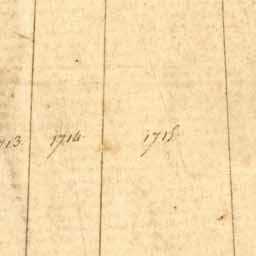 1713 1714 1715